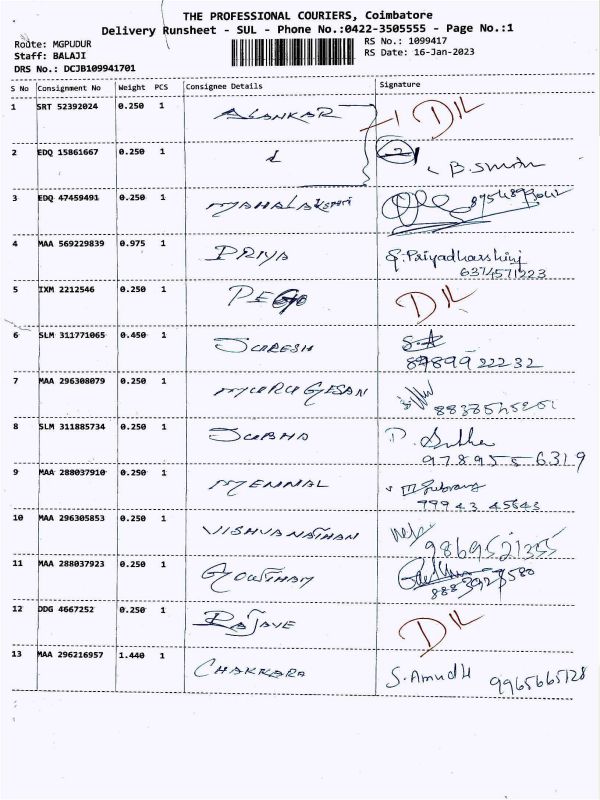 THE PROFESSIONAL COURIERS, Coimbatore
Delivery Runsheet - SUL - Phone No.:0422-3505555 - Page No.:1
Route: MGPUDUR
RS No.: 1099417
Staff: BALAJI
RS Date: 16-Jan-2023
DRS No.: DCJB109941701
S No Consignment No Weight PCS Consignee Details Signature
1 SRT 52392024 0.250 1 ALANKAR D/L
2 EDQ 15861667 0.250 1
3 EDQ 47459491 0.250 1 MAHALAKSHMI
4 MAA 569229839 0.975 1 PRIYA G.Priyadharshini
6374571223
5 IXM 2212546 0.250 1 D/L
6 SLM 311771065 0.450 1 SURESH
7 MAA 296308079 0.250 1 MURUGESAN
8 SLM 311885734 0.250 1 SUBHA
978955 6319
9 MAA 288037910 0.250 1 MENNAL
99943 45643
10 MAA 296305853 0.250 1 VISHVANATHAN
9869521355
11 MAA 288037923 0.250 1 GOWTHAM
12 DDG 4667252 0.250 1 D/L
13 MAA 296216957 1.440 1 CHAKKARA S.Amudh 9965665128